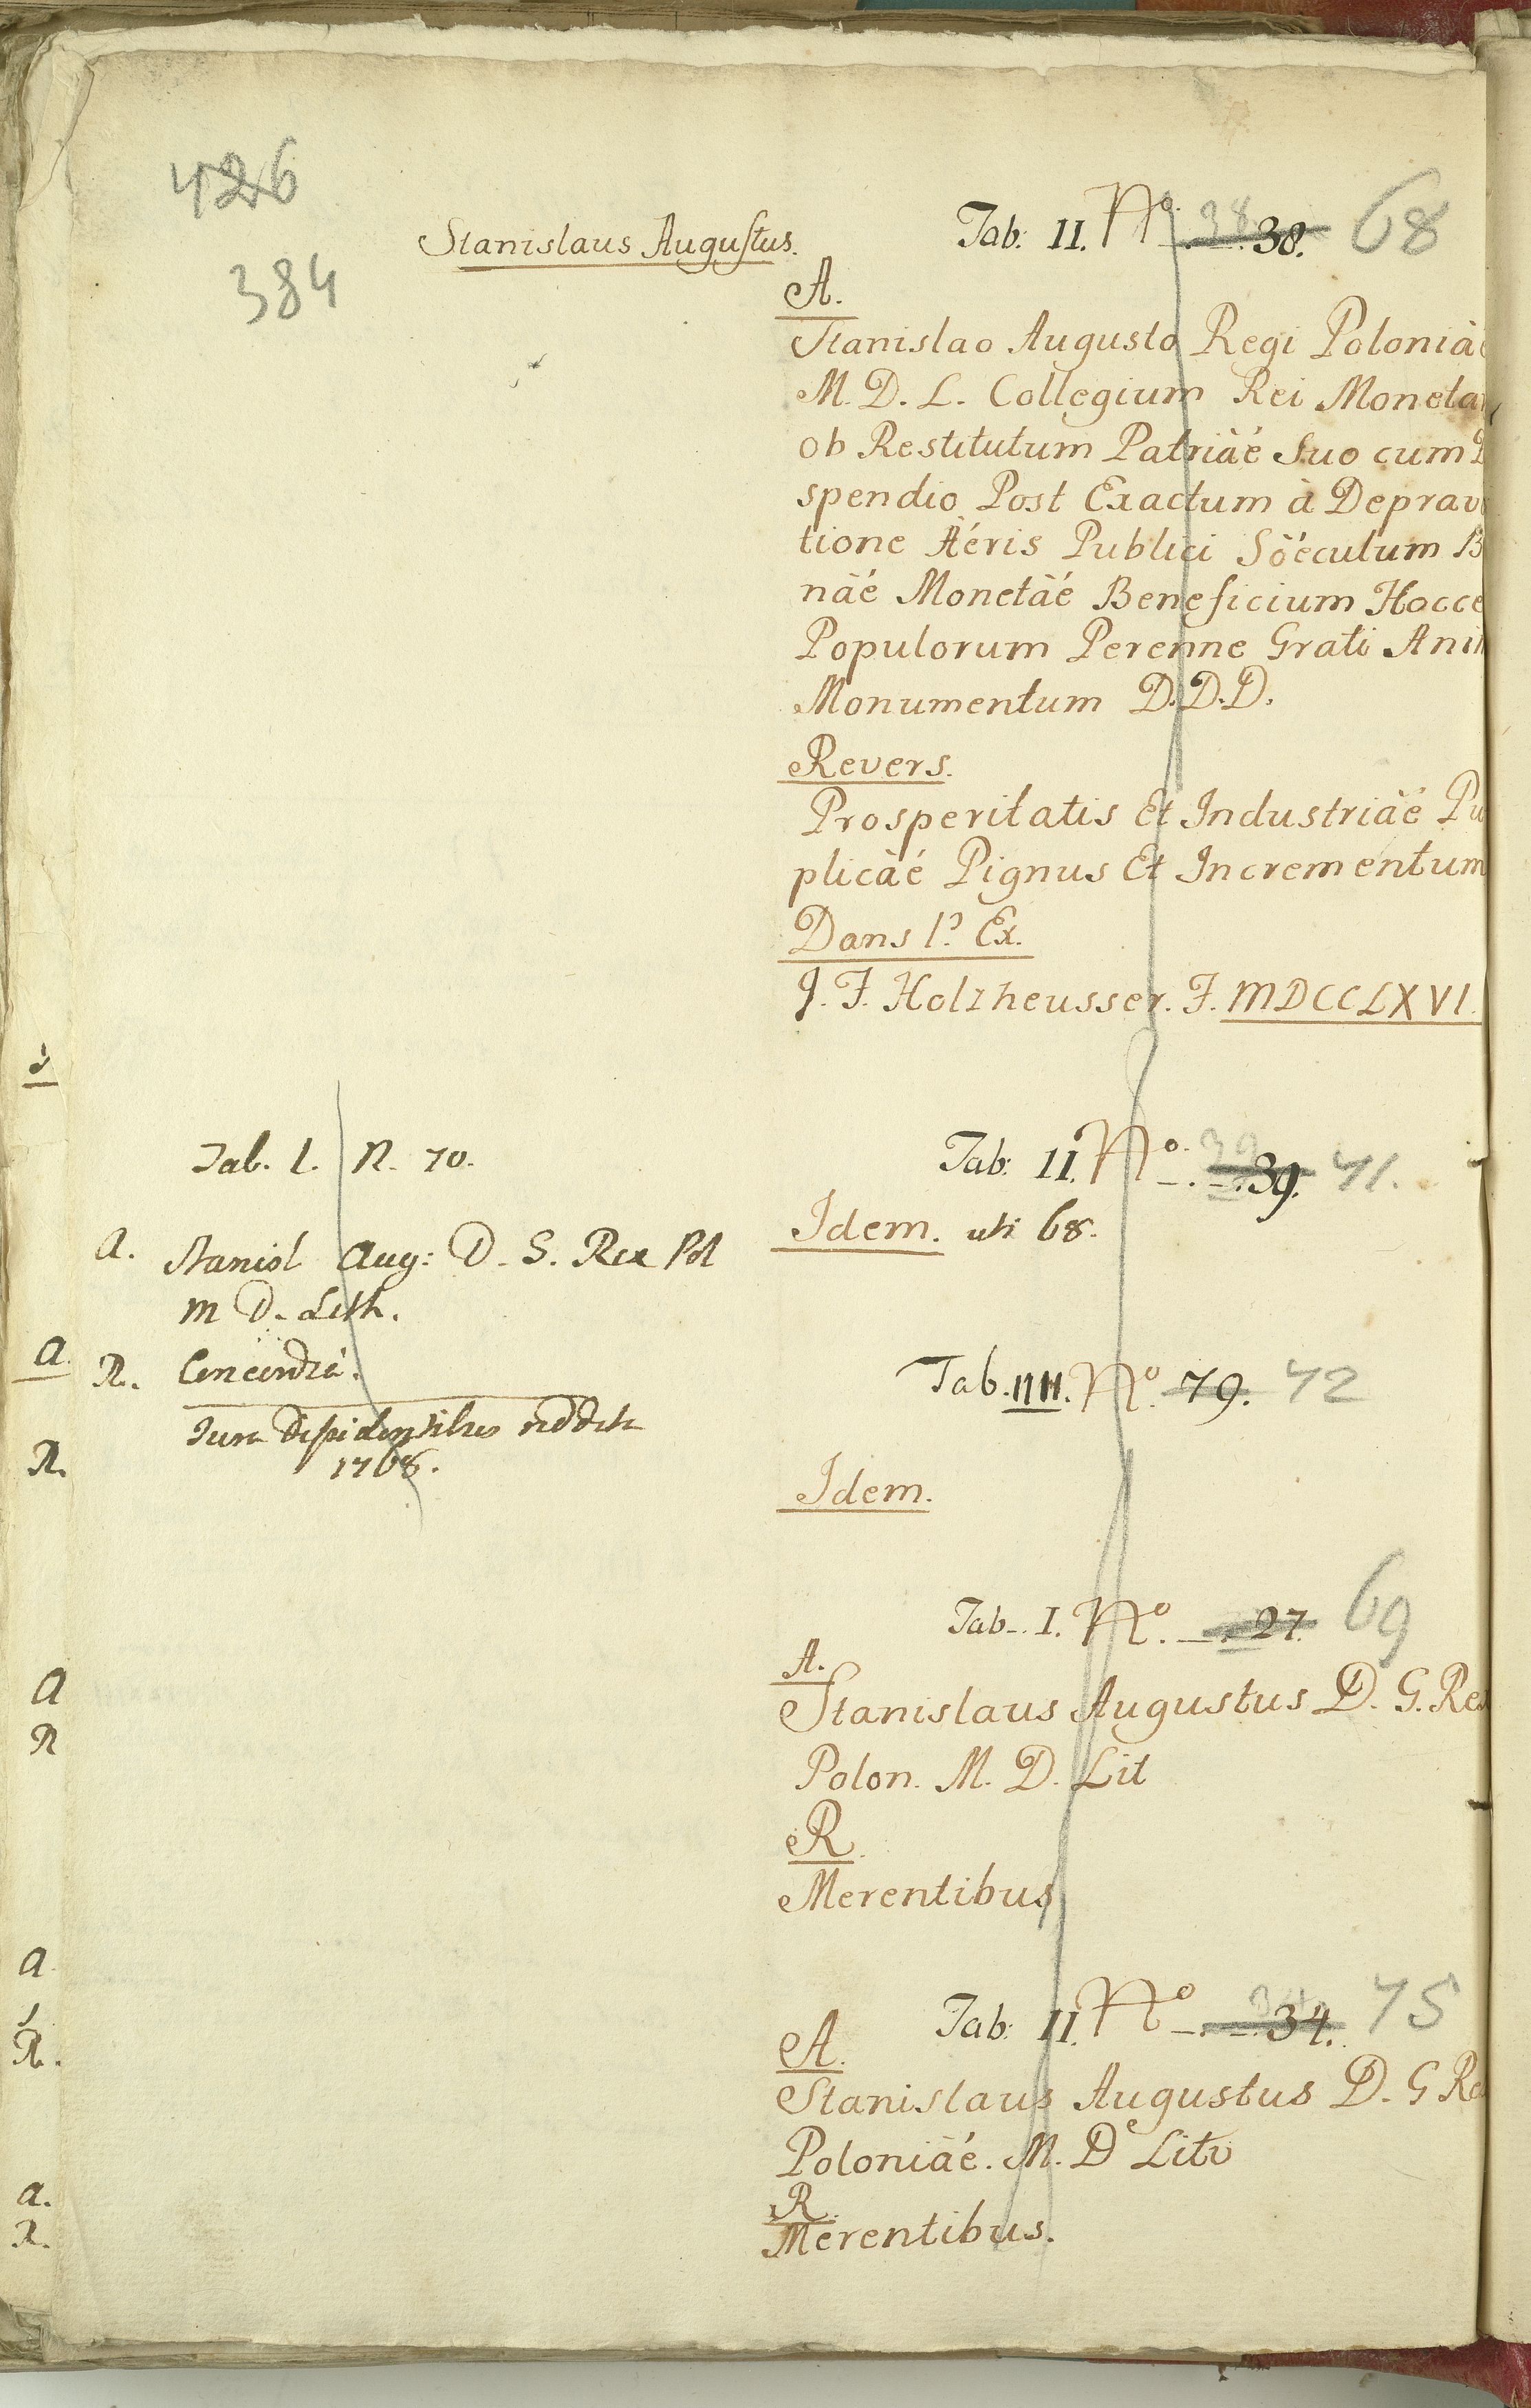 426
384
Stanislaus Augustus.
Tab: II. No. 38 38. 68
A.
Stanislao Augusto Regi Poloniäé
M. D. L. Collegium Rei Moneta
ob Restitutum Patriäé Suo cum
spendio Post Exactum à Deprav
tione Äéris Publici Söéculum B
näé Monetäé Beneficium Hocce
Populorum Perenne Grati Ani
Monumentum D.D.D.
Revers.
Prosperitatis Et Industriäé Pu
plicäé Pignus Et Incrementum
Dans l'? Ex.
J. F. Holzheusser. F. MDCCLXVI.
Tab. I. N. 70.
a. Stanisl Aug: D. S. Rex Pol
M D. Lith.
R. Concordia.
Jura 
1768.
Tab: II. No. 39 39. 71.
Idem. uti 68.
Tab. No. 79. 72
Idem.
Tab. I. No. 27. 69
A.
Stanislaus Augustus D. G. Rex
Polon. M. D. Lit
R.
Merentibus
Tab: II. No. 34 34. 75
A.
Stanislaus Augustus D. G Re
Poloniäé. M. D Litv
R.
Merentibus.
a.
R.
a
R
a
R.
a.
R.